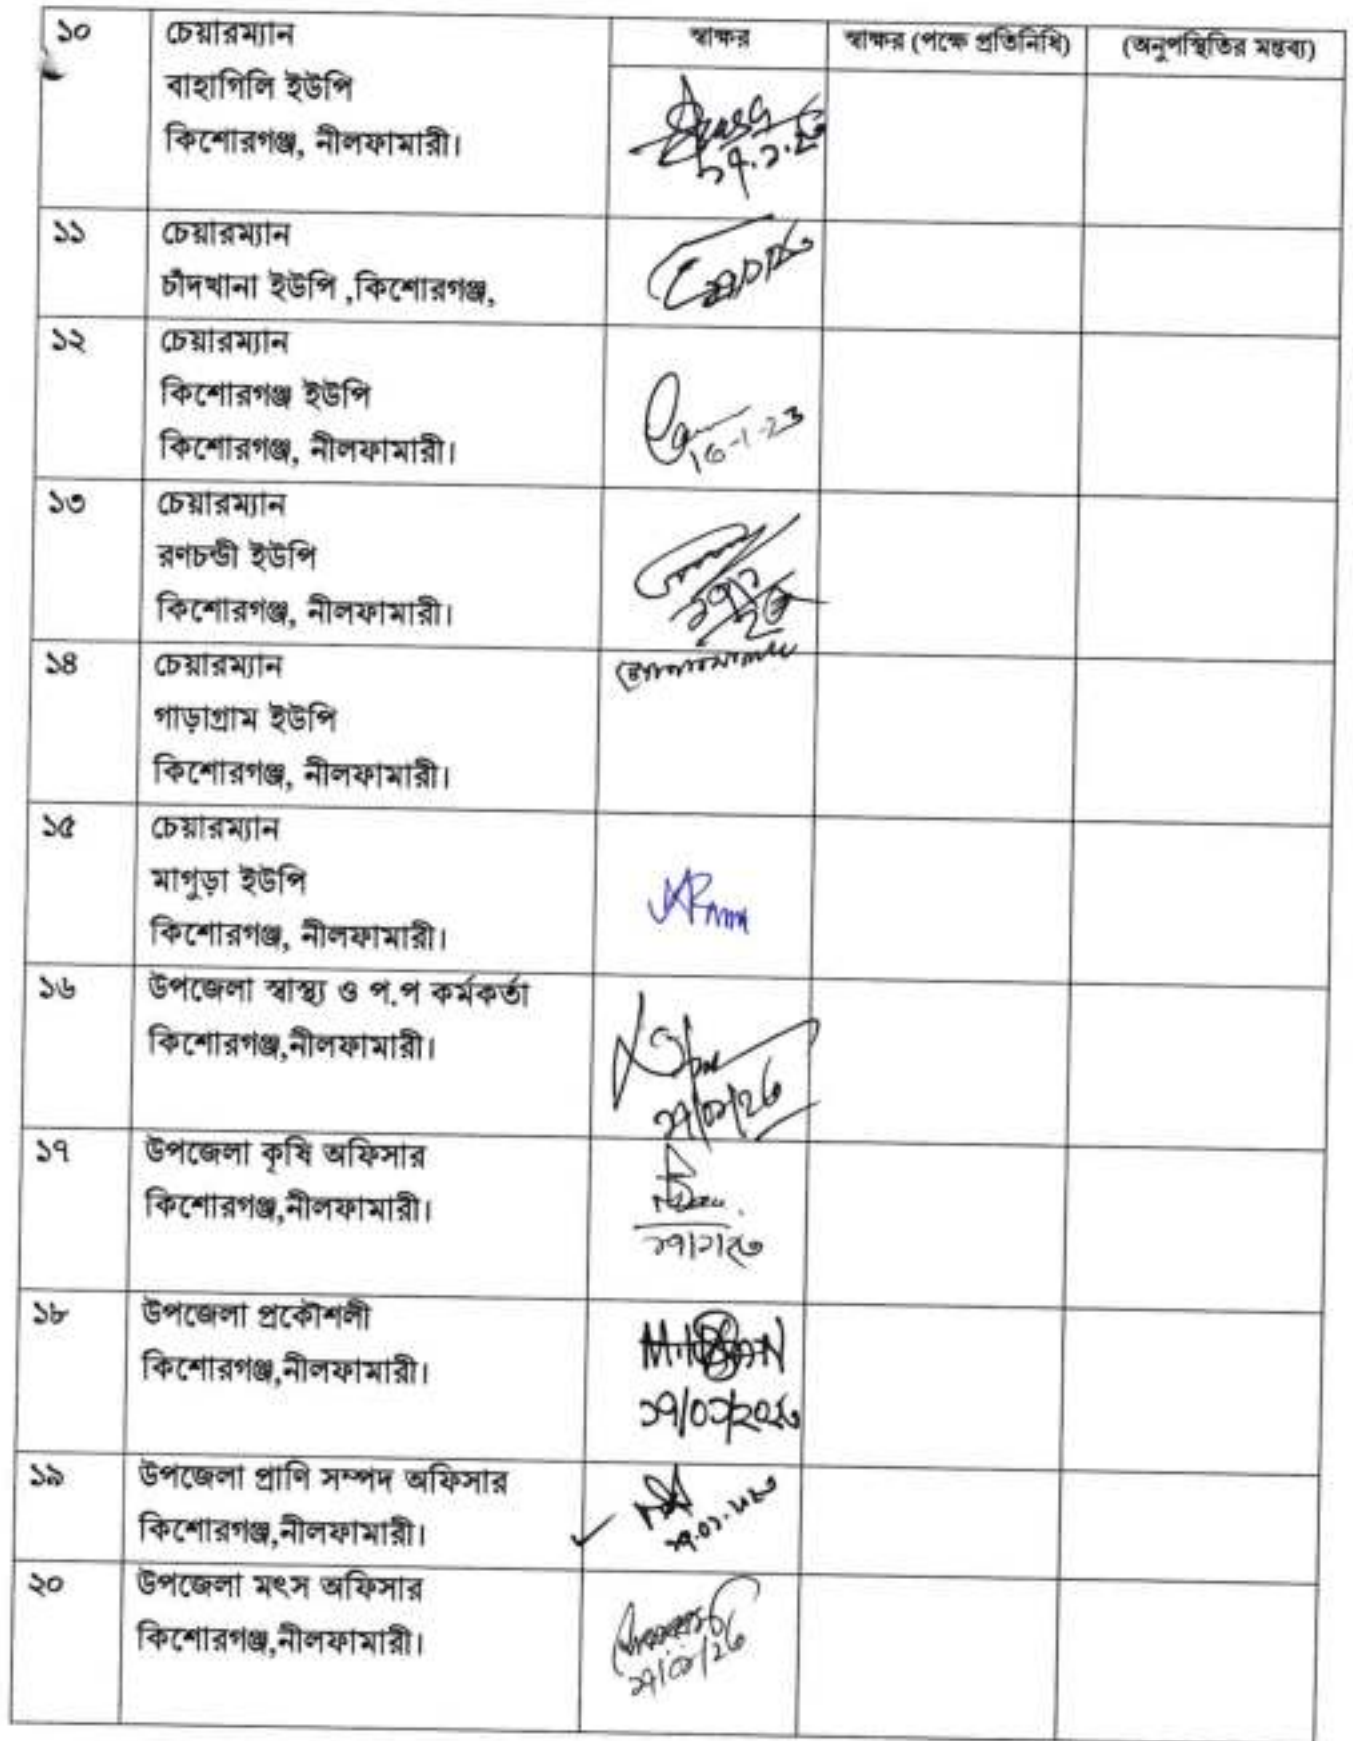 ১০ চেয়ারম্যান স্বাক্ষর স্বাক্ষর (পক্ষে প্রতিনিধি) (অনুপস্থিতির মন্তব্য)
বাহাগিলি ইউপি
কিশোরগঞ্জ, নীলফামারী।
১১ চেয়ারম্যান
চাঁদখানা ইউপি ,কিশোরগঞ্জ,
১২ চেয়ারম্যান
কিশোরগঞ্জ ইউপি
কিশোরগঞ্জ, নীলফামারী।
16-1-23
১৩ চেয়ারম্যান
রণচন্ডী ইউপি
কিশোরগঞ্জ, নীলফামারী।
১৪ চেয়ারম্যান
গাড়াগ্রাম ইউপি
কিশোরগঞ্জ, নীলফামারী।
১৫ চেয়ারম্যান
মাগুড়া ইউপি
কিশোরগঞ্জ, নীলফামারী।
১৬ উপজেলা স্বাস্থ্য ও প.প কর্মকর্তা
কিশোরগঞ্জ,নীলফামারী।
১৭/০১/২৩
১৭ উপজেলা কৃষি অফিসার
কিশোরগঞ্জ,নীলফামারী।
১৭/১/২৩
১৮ উপজেলা প্রকৌশলী
কিশোরগঞ্জ,নীলফামারী।
১৭/০১/২০২৩
১৯ উপজেলা প্রাণি সম্পদ অফিসার
কিশোরগঞ্জ,নীলফামারী।
২০ উপজেলা মৎস অফিসার
কিশোরগঞ্জ,নীলফামারী।
১৭/০১/২৩